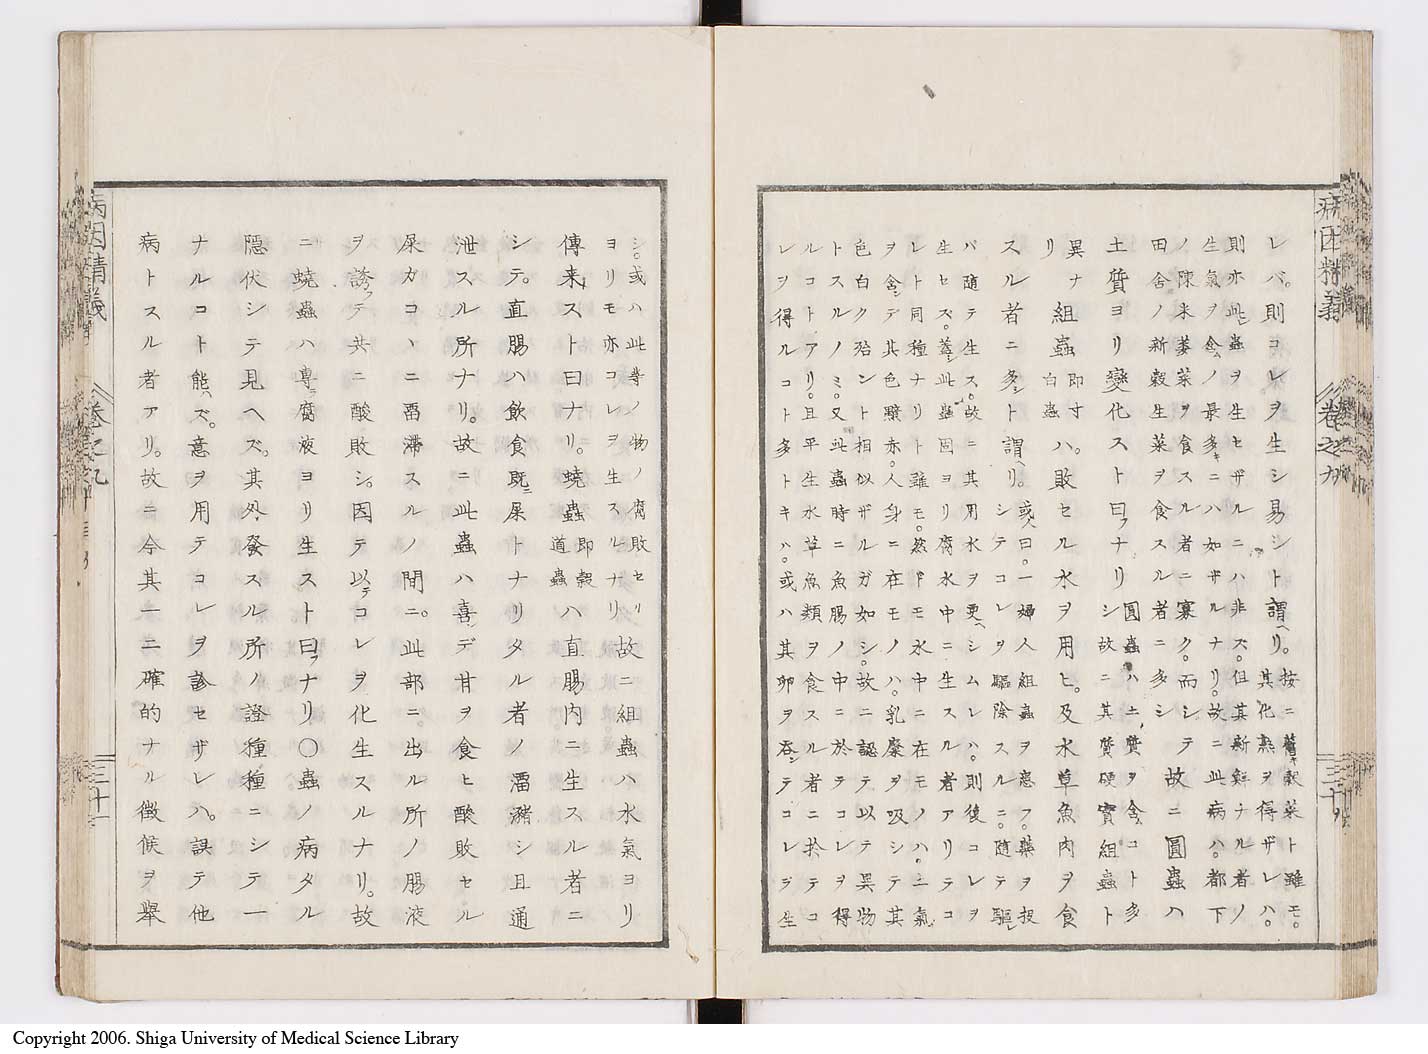 病因精義 巻之九 三十
レバ。則コレヲ生シ易シト謂ヘリ。按ニ舊穀菜ト雖モ。
其化熟ヲ得ザレハ。
則亦此蟲ヲ生セザルニハ非ス。但其新鮮ナル者ノ
生氣ヲ含ムノ最多キニハ如ザルナリ。故ニ此病ハ。都下
ノ陳米萎菜ヲ食スル者ニ寡ク。而シテ
田舎ノ新穀生菜ヲ食スル者ニ多シ 故ニ圓蟲ハ
土質ヨリ變化スト曰フナリ 圓蟲ハ土質ヲ含ムコト多
シ故ニ其質硬實組蟲ト
異ナ
リ 組蟲 即寸白蟲 ハ。敗セル水ヲ用ヒ。及水草魚肉ヲ食
スル者ニ多シト謂ヘリ。或人曰。一婦人組蟲ヲ患フ。藥ヲ投
シテコレヲ驅除スルニ。随テ驅レ
バ随テ生ス。故ニ其用水ヲ更ヘシムレハ。則後コレヲ
生セズ。蓋シ此蟲固ヨリ腐水中ニ生スル者アリテコ
レト同種ナリト雖モ。然ドモ水中ニ在モノハ。二氣
ヲ含デ其色黯赤。人身ニ在モノハ。乳糜ヲ吸シテ其
色白ク殆ント相似ザルガ如シ。故ニ認テ以テ異物
トスルノミ。又此蟲時ニ魚腸ノ中ニ於テコレヲ得
ルコトアリ。且平生水草魚類ヲ食スル者ニ於テコ
レヲ得ルコト多トキハ。或ハ其卵ヲ呑シテコレヲ生
シ。或ハ此等ノ物ノ腐敗セリ
ヨリモ亦コレヲ生スルナリ 故ニ組蟲ハ水氣ヨリ
傳来スト曰ナリ。蟯蟲 即穀道蟲 ハ直腸内ニ生スル者ニ
シテ。直腸ハ飲食既ニ屎トナリタル者ノ溜瀦シ且通
泄スル所ナリ。故ニ此蟲ハ喜デ甘ヲ食ヒ酸敗セル
屎ガコヽニ畱滞スルノ間ニ。此部ニ出ル所ノ腸液
ヲ誘フテ共ニ酸敗シ。因テ以テコレヲ化生スルナリ。故
ニ蟯蟲ハ專ラ腐液ヨリ生スト曰フナリ〇蟲ノ病タル
隠伏シテ見ヘズ。其外ニ發スル所ノ證種種ニシテ一
ナルコト能ハズ。意ヲ用テコレヲ診セザレハ。誤テ他
病トスル者アリ。故ニ今其一二確的ナル徴候ヲ擧
病因精義 巻之九 三十一
Copyright 2006. Shiga University of Medical Science Library